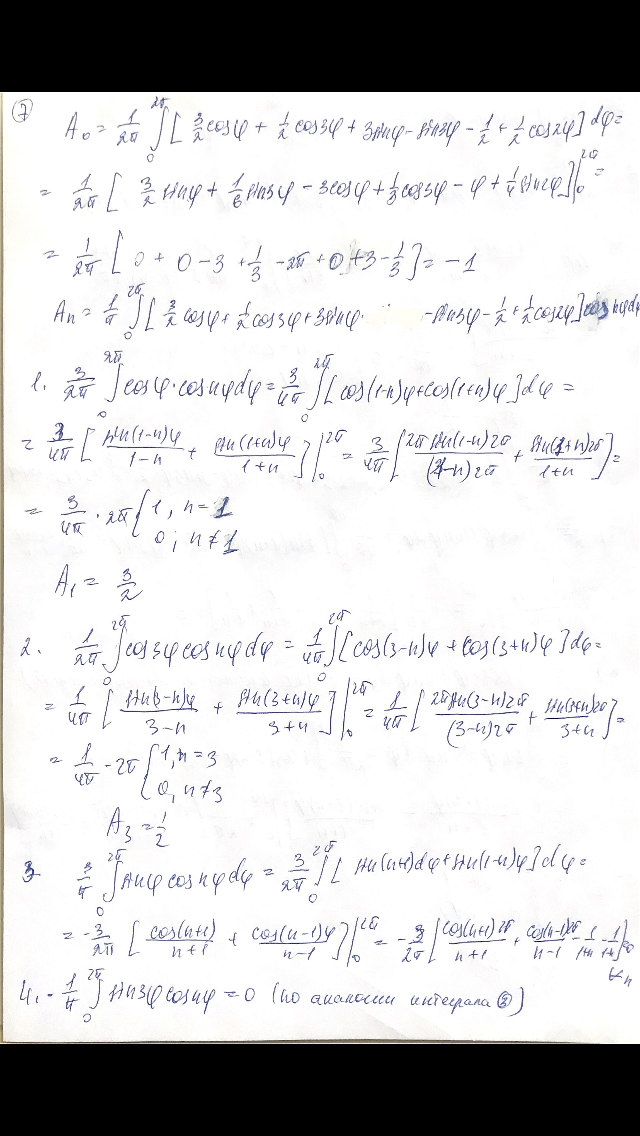 ⑦
A₀ = 1/2π ∫₀^2π [3/2 cosφ + 1/2 cos3φ + 3sinφ - sin3φ - 1/2 + 1/2 cos2φ] dφ =
= 1/2π [3/2 sinφ + 1/6 sin3φ - 3cosφ + 1/3 cos3φ - φ + 1/4 sin2φ] |₀^2π =
= 1/2π [0 + 0 - 3 + 1/3 - 2π + 0 + 3 - 1/3] = -1
Aₙ = 1/π ∫₀^2π [3/2 cosφ + 1/2 cos3φ + 3sinφ - sin3φ - 1/2 + 1/2 cos2φ] cos nφ dφ
1. 3/2π ∫₀^2π cosφ · cos nφ dφ = 3/4π ∫₀^2π [cos(1-n)φ + cos(1+n)φ] dφ =
= 3/4π [sin(1-n)φ/1-n + sin(1+n)φ/1+n] |₀^2π = 3/4π [2π sin(1-n)2π/(1-n)2π + sin(1+n)2π/1+n] =
= 3/4π · 2π { 1, n = 1
0, n ≠ 1
A₁ = 3/2
2. 1/2π ∫₀^2π cos3φ cos nφ dφ = 1/4π ∫₀^2π [cos(3-n)φ + cos(3+n)φ] dφ =
= 1/4π [sin(3-n)φ/3-n + sin(3+n)φ/3+n] |₀^2π = 1/4π [2π sin(3-n)2π/(3-n)2π + sin(3+n)2π/3+n] =
= 1/4π · 2π { 1, n = 3
0, n ≠ 3
A₃ = 1/2
3 3/π ∫₀^2π sinφ cos nφ dφ = 3/2π ∫₀^2π [sin(n+1)dφ + sin(1-n)φ] dφ =
= -3/2π [cos(n+1)/n+1 + cos(n-1)φ/n-1] |₀^2π = -3/2π [cos(n+1)2π/n+1 + cos(n-1)2π/n-1 - 1/1+n - 1/1-n] = 0
∀n
4. -1/π ∫₀^2π sin3φ cos nφ = 0 (по аналогии интеграла ③)